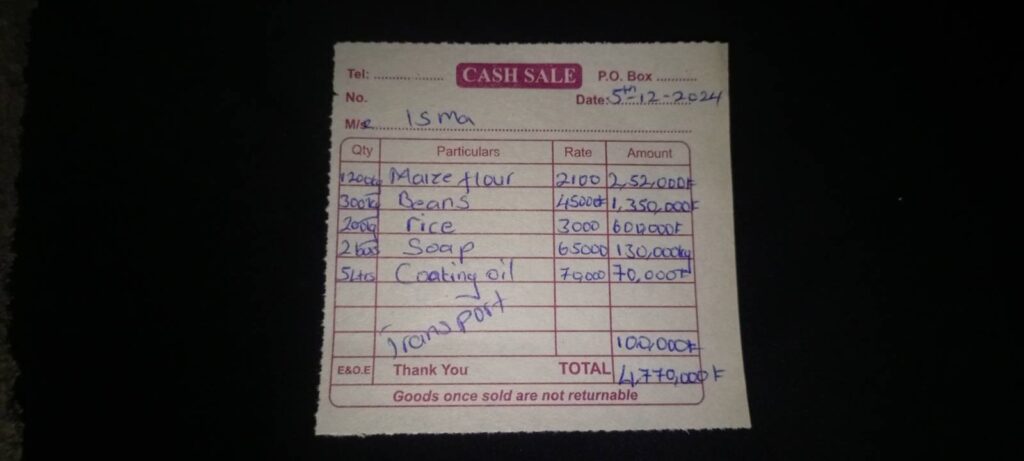 Tel: .................... CASH SALE P.O. Box ............
No. Date: 5th-12-2024
M/s Isma
Qty Particulars Rate Amount
1200kg Maize flour 2100 2,52,000F
300kg Beans 4500F 1,350,000F
200kg rice 3000 600,000F
Soap 65000 130,000kg
5Ltrs Cooking oil 70,000 70,000F
Transport 100,000F
E&O.E Thank You TOTAL 4,770,000F
Goods once sold are not returnable